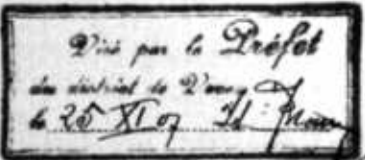 Visé par le Préfet
du district de Vevey
le 25 XI 07